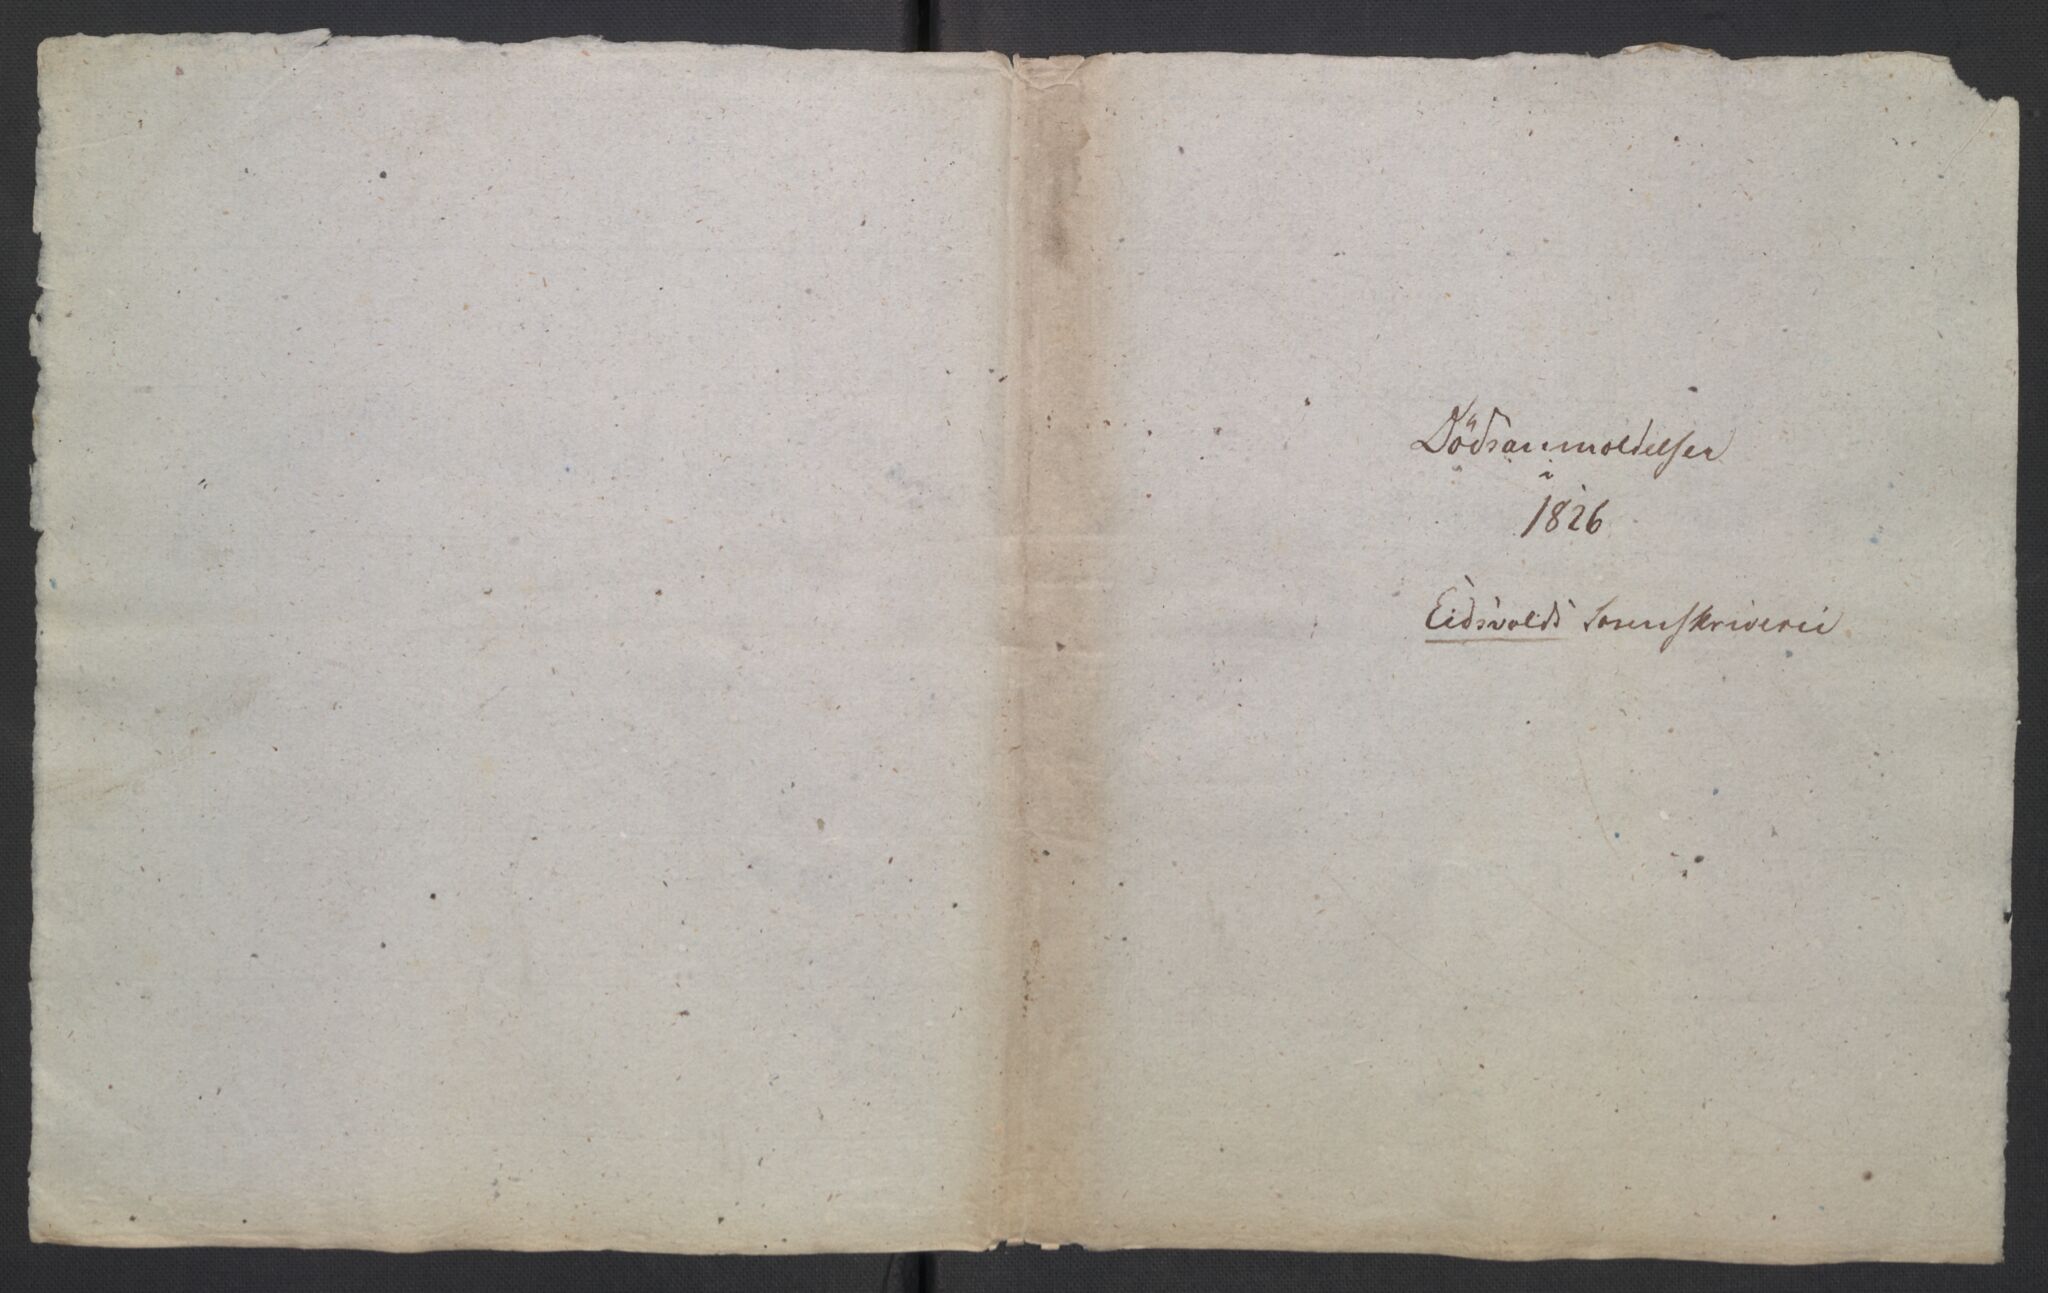 Dödsanmeldelser
i
1826
Eidsvolds Sorenskriverei